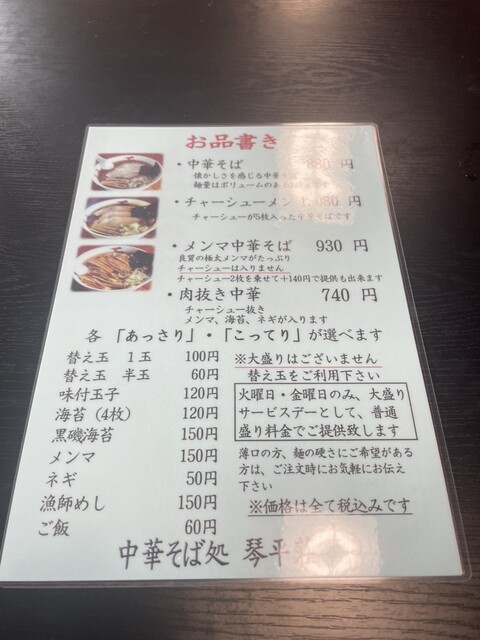 お品書き
・中華そば 880 円
懐かしさを感じる中華そば
麺量はボリュームのある
・チャーシューメン 1,080 円
チャーシューが5枚入った中華そばです
・メンマ中華そば 930 円
良質の極太メンマがたっぷり
チャーシューは入りません
チャーシュー2枚を乗せて+140円で提供も出来ます
・肉抜き中華 740 円
チャーシュー抜き
メンマ、海苔、ネギが入ります
各 「あっさり」・「こってり」が選べます
替え玉 1玉 100円
替え玉 半玉 60円
味付玉子 120円
海苔(4枚) 120円
黒磯海苔 150円
メンマ 150円
ネギ 50円
漁師めし 150円
ご飯 60円
※大盛りはございません
替え玉をご利用下さい
火曜日・金曜日のみ、大盛り
サービスデーとして、普通
盛り料金でご提供致します
薄口の方、麺の硬さにご希望がある
方は、ご注文時にお気軽にお伝え
下さい
※価格は全て税込みです
中華そば処 琴平荘